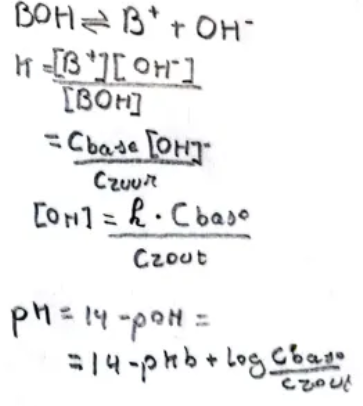 BOH ⇌ B⁺ + OH⁻
K = [B⁺][OH⁻]
[BOH]
= Cbase [OH]⁻
Czuur
[OH] = k · Cbase
Czout
pH = 14 - pOH =
= 14 - pKb + log Cbase
Czout